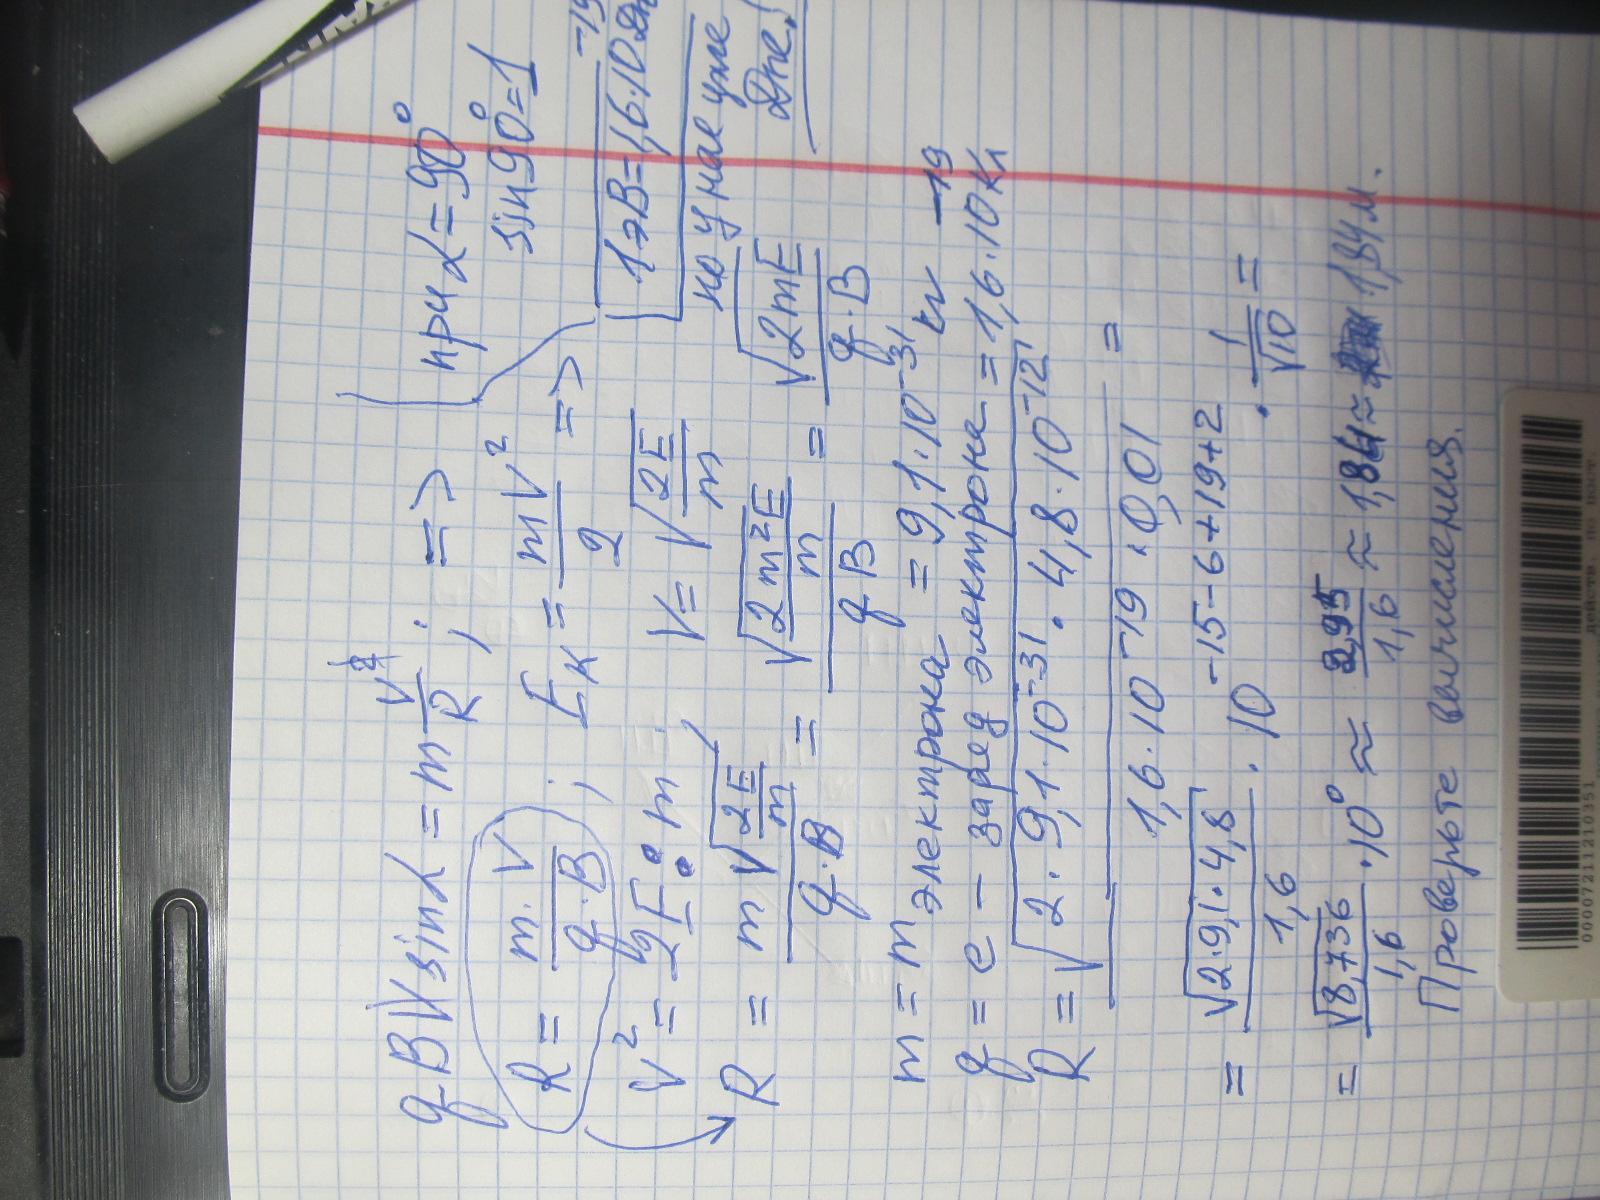 q·BVsinα = m V²/R ; => при α=90°
sin90°=1
R = m·V/q·B ; Eк = mV²/2 =>
1эВ=1,6·10⁻¹⁹Дж
но у нас уже
Дж.
V² = 2E : m ; V = √2E/m
R = m√2E/m / q·B = √2m²E/m / qB = √2mE / q·B = √2mE
m = m электрона = 9,1·10⁻³¹ кг
q = e - заряд электрона = 1,6·10⁻¹⁹Кл
R = √2·9,1·10⁻³¹·4,8·10⁻¹² / 1,6·10⁻¹⁹·0,01 =
= √2·9,1·4,8 / 1,6 · 10⁻¹⁵⁻⁶⁺¹⁹⁺² · 1/√10 =
= √8,736 / 1,6 · 10⁰ ≈ 2,95 / 1,6 ≈ 1,84 ≈ 1,84 м.
Проверьте вычисления.
0000721121210351